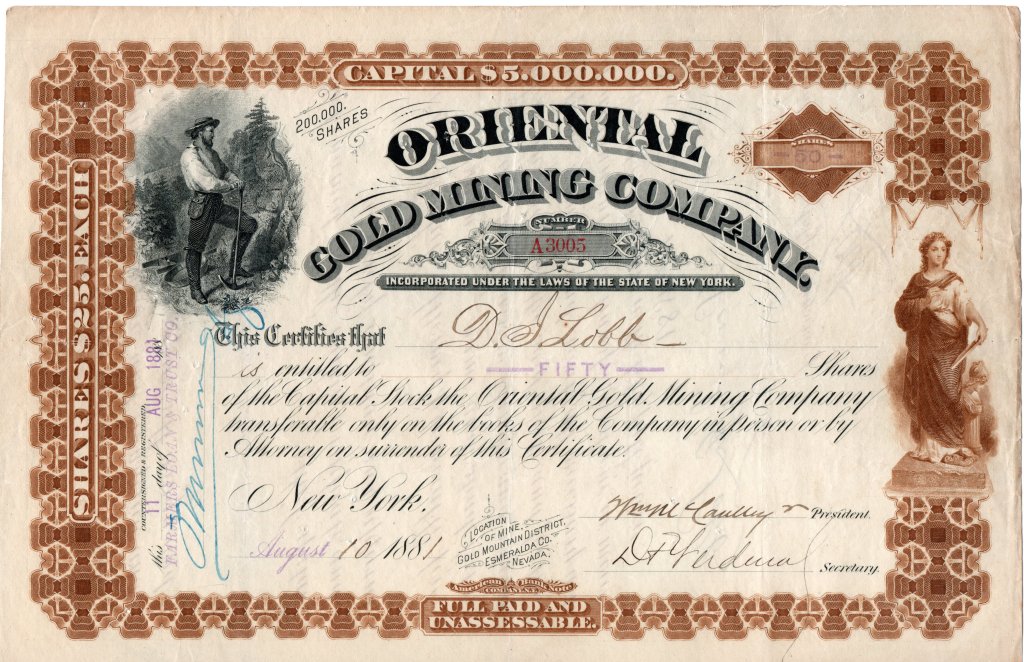 CAPITAL $5.000.000.
200.000. SHARES
ORIENTAL
GOLD MINING COMPANY.
SHARES
— 50 —
NUMBER
A3005
INCORPORATED UNDER THE LAWS OF THE STATE OF NEW YORK.
SHARES $25. EACH
This Certifies that D. J. Lobb —
is entitled to — FIFTY — Shares
of the Capital Stock the Oriental Gold Mining Company
transferable only on the books of the Company in person or by
Attorney on surrender of this Certificate.
New York,
August 10 1881
LOCATION
OF MINE,
GOLD MOUNTAIN DISTRICT,
ESMERALDA CO.
NEVADA.
President.
Secretary.
COUNTERSIGNED & REGISTERED
this 11 day of AUG 1881 188
FARMERS LOAN & TRUST CO.
American Bank Note
COMPANY N.Y.
FULL PAID AND
UNASSESSABLE.